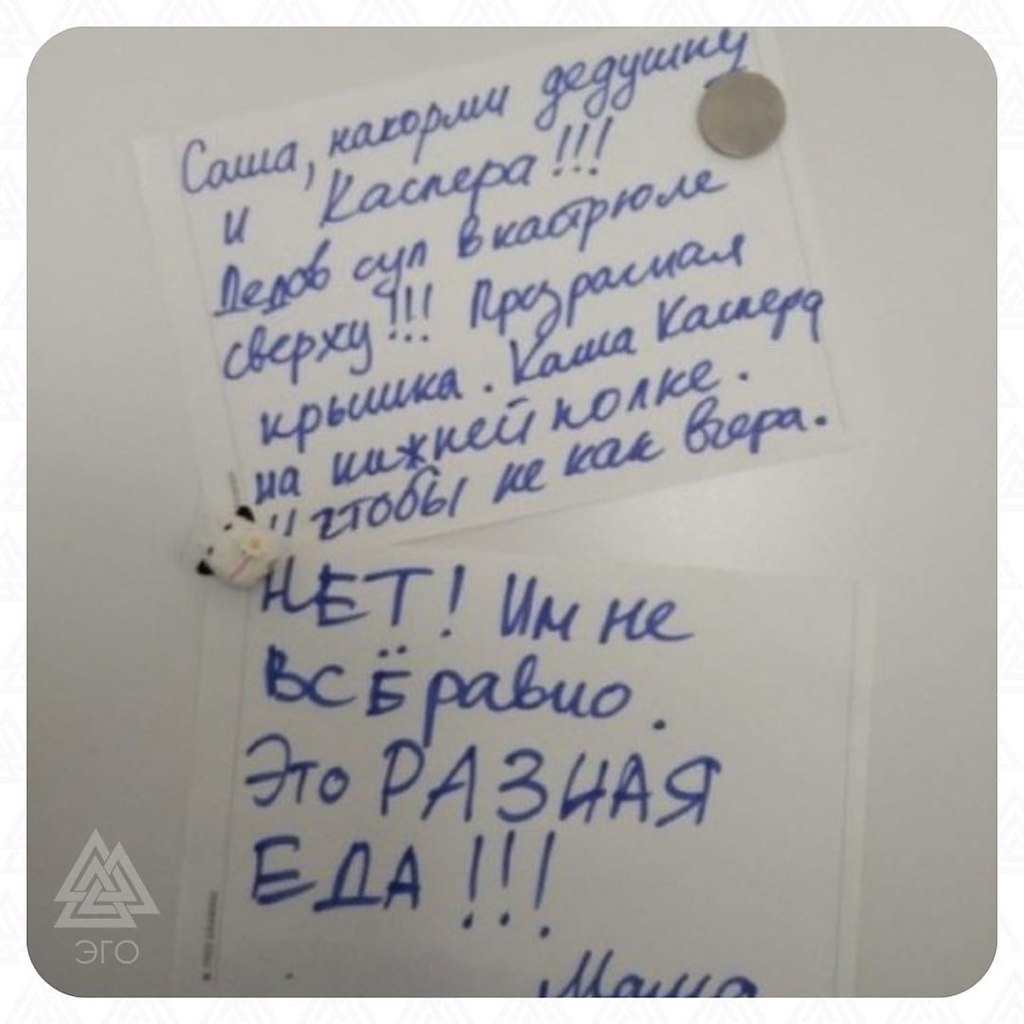 Саша, накорми дедушку
и Каспера!!!
Дедов суп в кастрюле
сверху!!! Прозрачная
крышка. Каша Каспера
на нижней полке.
И чтобы не как вчера.
НЕТ! Им не
всЁ равно.
Это РАЗНАЯ
ЕДА!!!
ЭГО